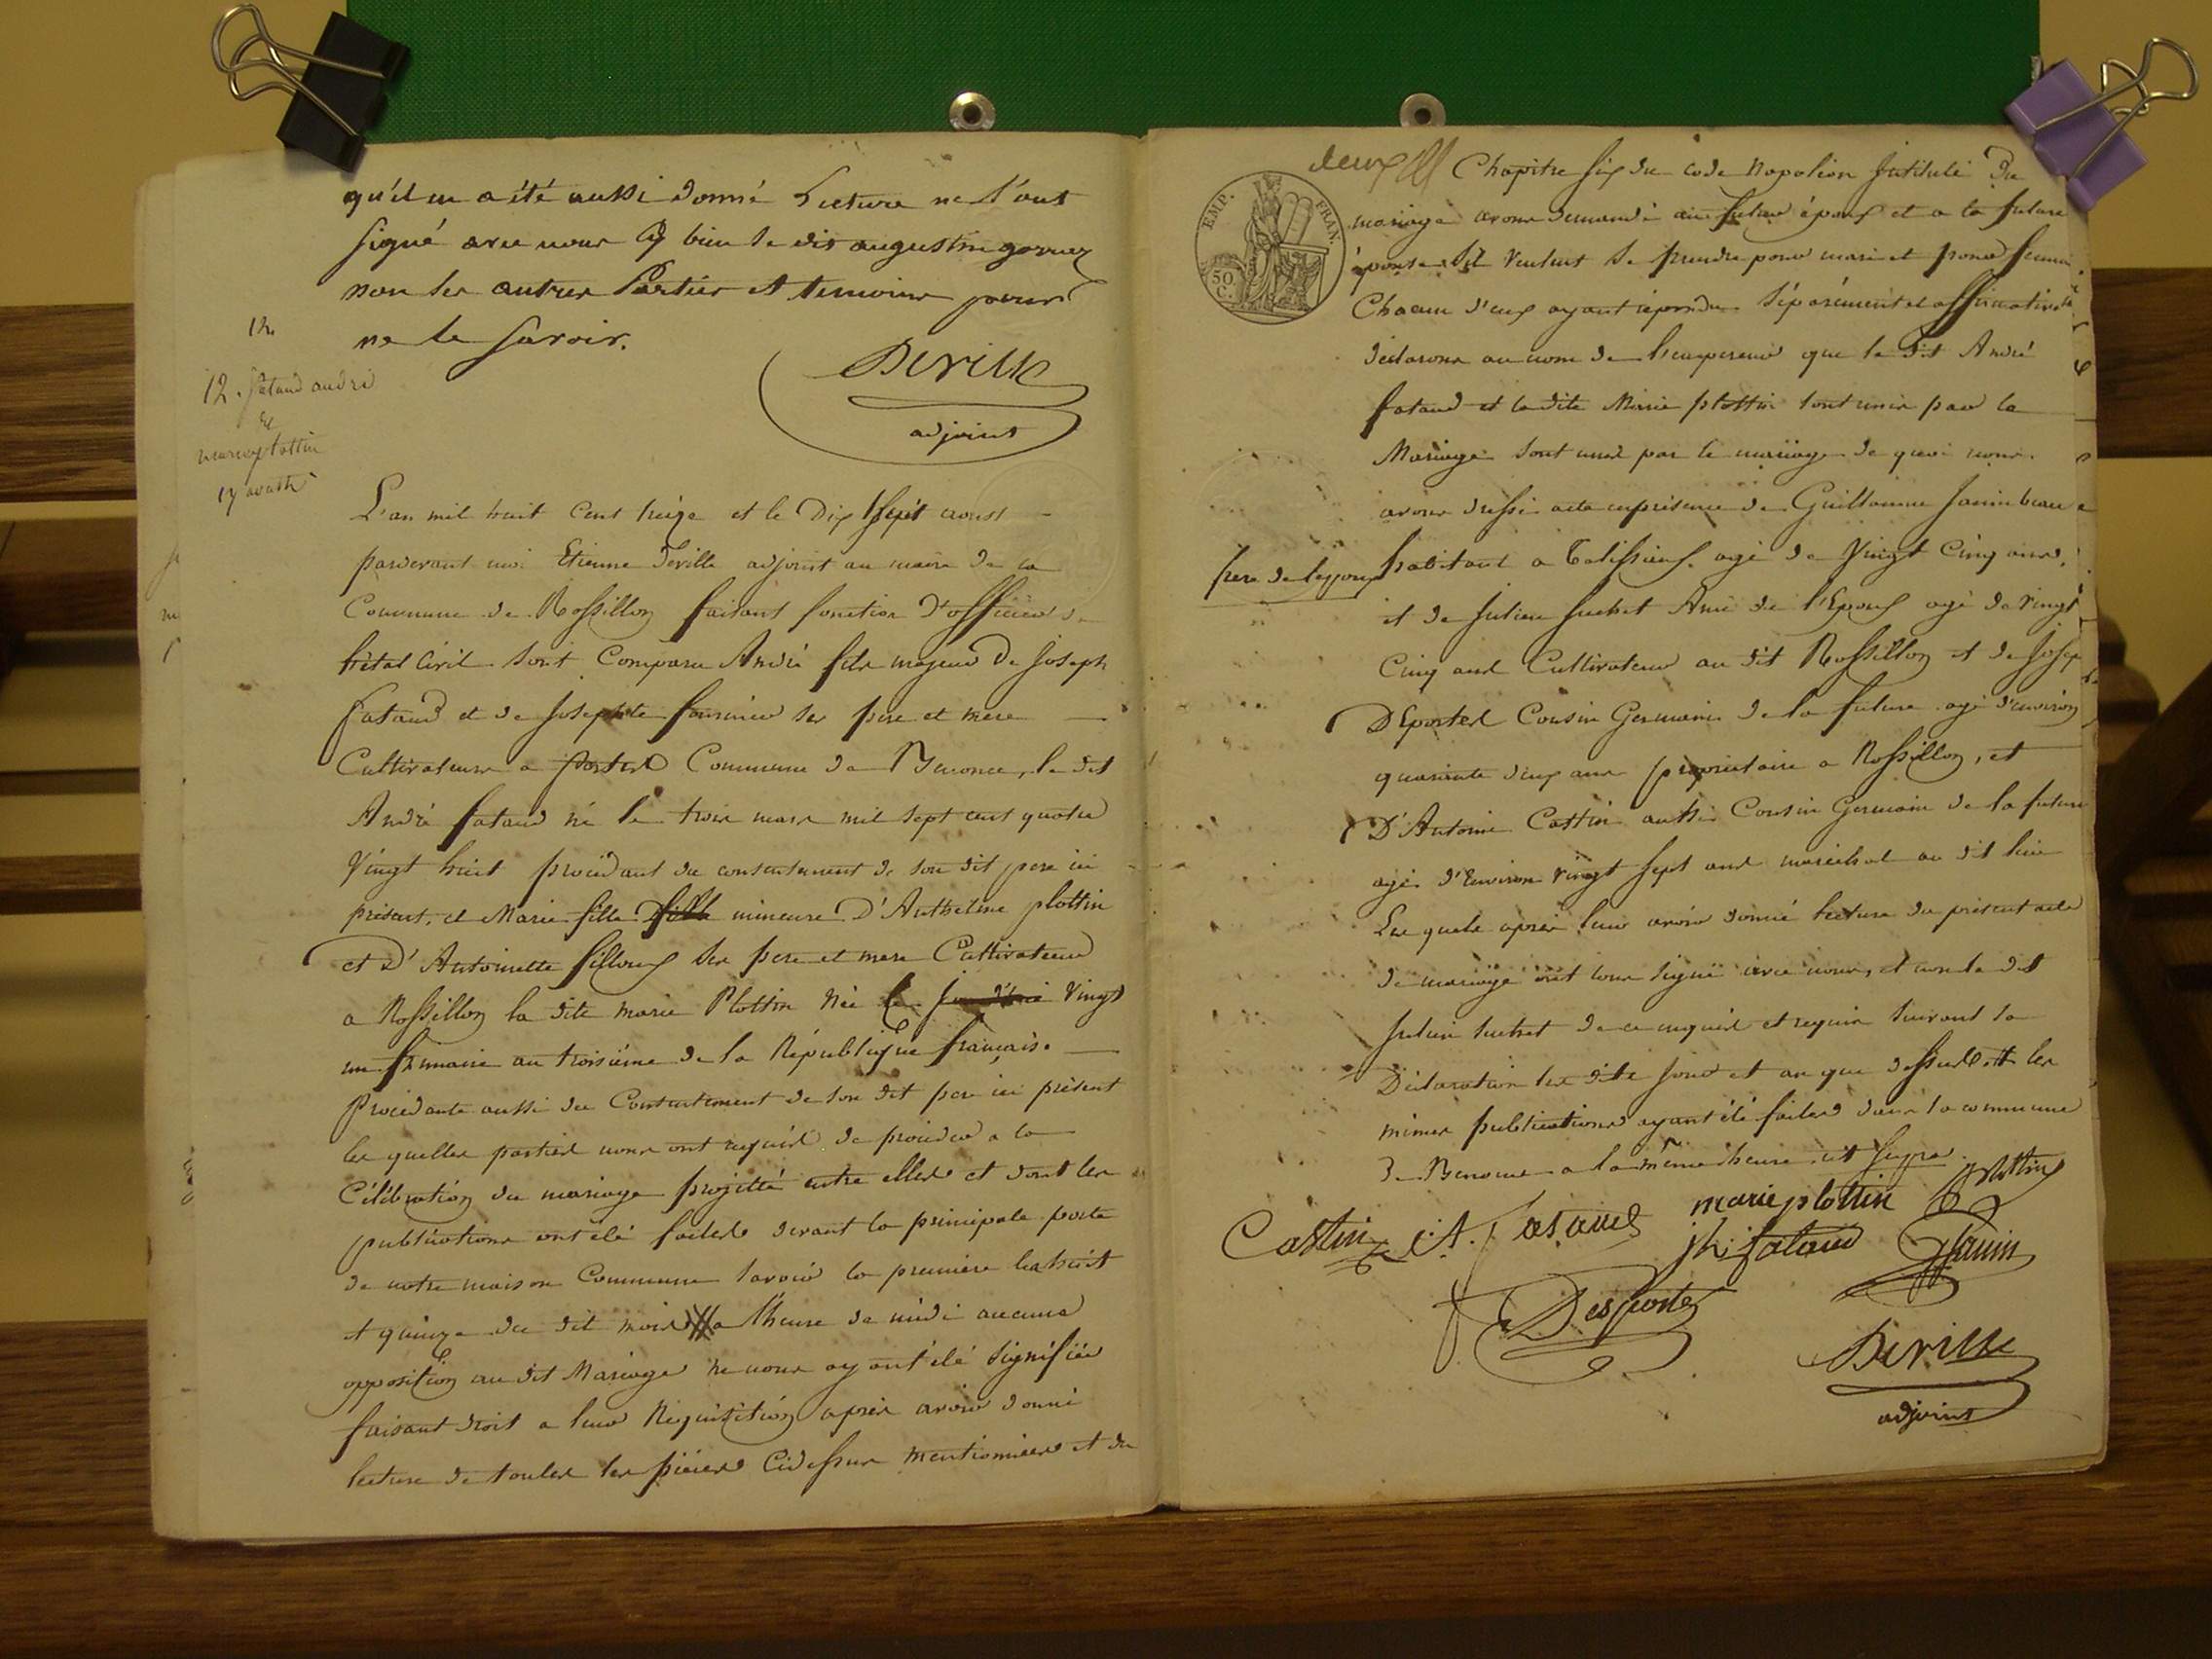 qu'il en a été aussi donné Lecture ne l'ont
signé avec nous si bien le dit augustin
non les autres Parties et temoins pour
ne le savoir.
Deville
adjoint
12.
12. fataud andré
&
marie plottin
17 aoust
L'an mil huit Cent treize et le Dix Sept aoust
pardevant moi Etienne Deville adjoint au maire de la
Commune de Rossillon faisant fonction d'officier de
l'état Civil sont Comparu André fils majeur De Joseph
fataud et de Josephte ses pere et mere
Cultivateurs a Commune de Benonce, le dit
André fataud né le trois mars mil sept cent quatre
Vingt huit procédant du consentement de son dit pere ici
présent, et Marie fille mineure D'Anthelme plottin
et D'Antoinette filloux ses pere et mere Cultivateurs
a Rossillon la dite marie Plottin née le Vingt
un frimaire an troisième de la République française.
Procédante aussi du Consentement de son dit pere ici présent
les quelles parties nous ont requis de procéder a la
Célébration du mariage projetté entre elles et dont les
publications ont été faites devant la principale porte
de notre maison Commune savoir la première le huit
et quinze du dit mois a l'heure de midi aucune
opposition au dit Mariage ne nous ayant été signifiée
faisant droit a leur Réquisition après avoir donné
lecture de toutes les pièces Cidessus mentionnées et du
deux
TEMP. FRAN.
50
C.
Chapitre six du code Napoléon Intitulé Du
mariage avons demandé au futur époux et a la future
épouse s'il veulent se prendre pour mari et pour femme
Chacun d'eux ayant répondu séparément et affirmativement
déclarons au nom de l'empereur que le dit André
fataud et la dite Marie plottin sont unis par le
Mariage sont unis par le mariage de quoi nous
avons dressé acte en présence de Guillaume Janin beau
frere de l'epoux
habitant a Talissieux agé de Vingt Cinq ans,
et de Julien Suchet Ami de l'Epoux agé de vingt
Cinq ans Cultivateur au dit Rossillon et de Joseph
D'Eportes Cousin Germain de la future agé d'environ
quarante deux ans propriétaire a Rossillon, et
D'Antoine Cottin aussi Cousin Germain de la future
agé d'Environ Vingt sept ans maréchal au dit lieu
Les quels après leur avoir donné lecture du présent acte
de mariage ont tous signé avec nous, et non le dit
Julien Suchet de ce enquis et requis suivant sa
Déclaration les dits jour et an que dessus et les
mêmes publications ayant été faites dans la commune
De Benonce a la même heure
Costin A. fataud marie plottin Plottin
jh. fataud Janin
Desportes
Deville
adjoint